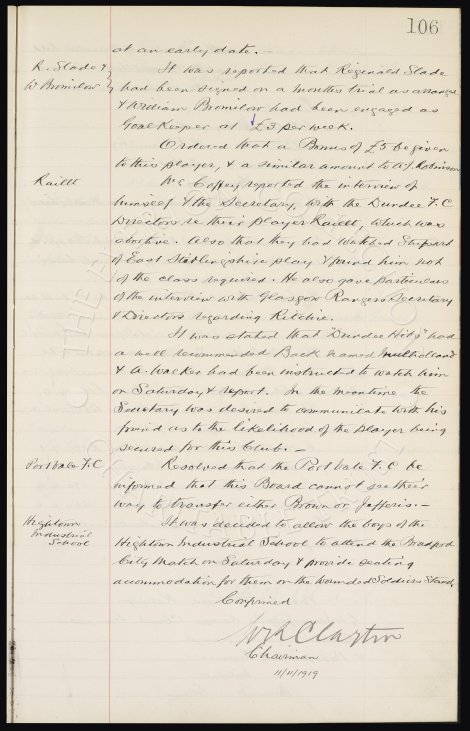 106
at an early date. —
R. Slade &
W Bromilow
It was reported that Reginald Slade
had been signed on a months trial as arranged
& William Bromilow had been engaged as
Goal Keeper at £3 per week.
Ordered that a Bonus of £5 be given
to this player, & a similar amount to A.J. Robinson
Raillt
Mr Caffery reported the interview of
himself & the Secretary with the Dundee F.C
Directors re their player Raillt, which was
abortive. Also that they had watched Shepard
of East Stirlingshire play & found him not
of the class required. He also gave particulars
of the interview with Glasgow Rangers Secretary
& Directors regarding Ritchie.
It was stated that "Dundee Hibs" had
a well recommended Back named Mulholland
& A. Walker had been instructed to watch him
on Saturday & report. In the meantime the
Secretary was desired to communicate with his
friend as to the likelihood of the player being
secured for this Club. —
Port Vale F.C
Resolved that the Port Vale F.C be
informed that this Board cannot see their
way to transfer either Brown or Jefferis. —
Hightown
Industrial
School
It was decided to allow the boys of the
Hightown Industrial School to attend the Bradford
City Match on Saturday & provide seating
accommodation for them on the Wounded Soldiers Stand.
Confirmed
W R Clayton
Chairman
11/11/1919